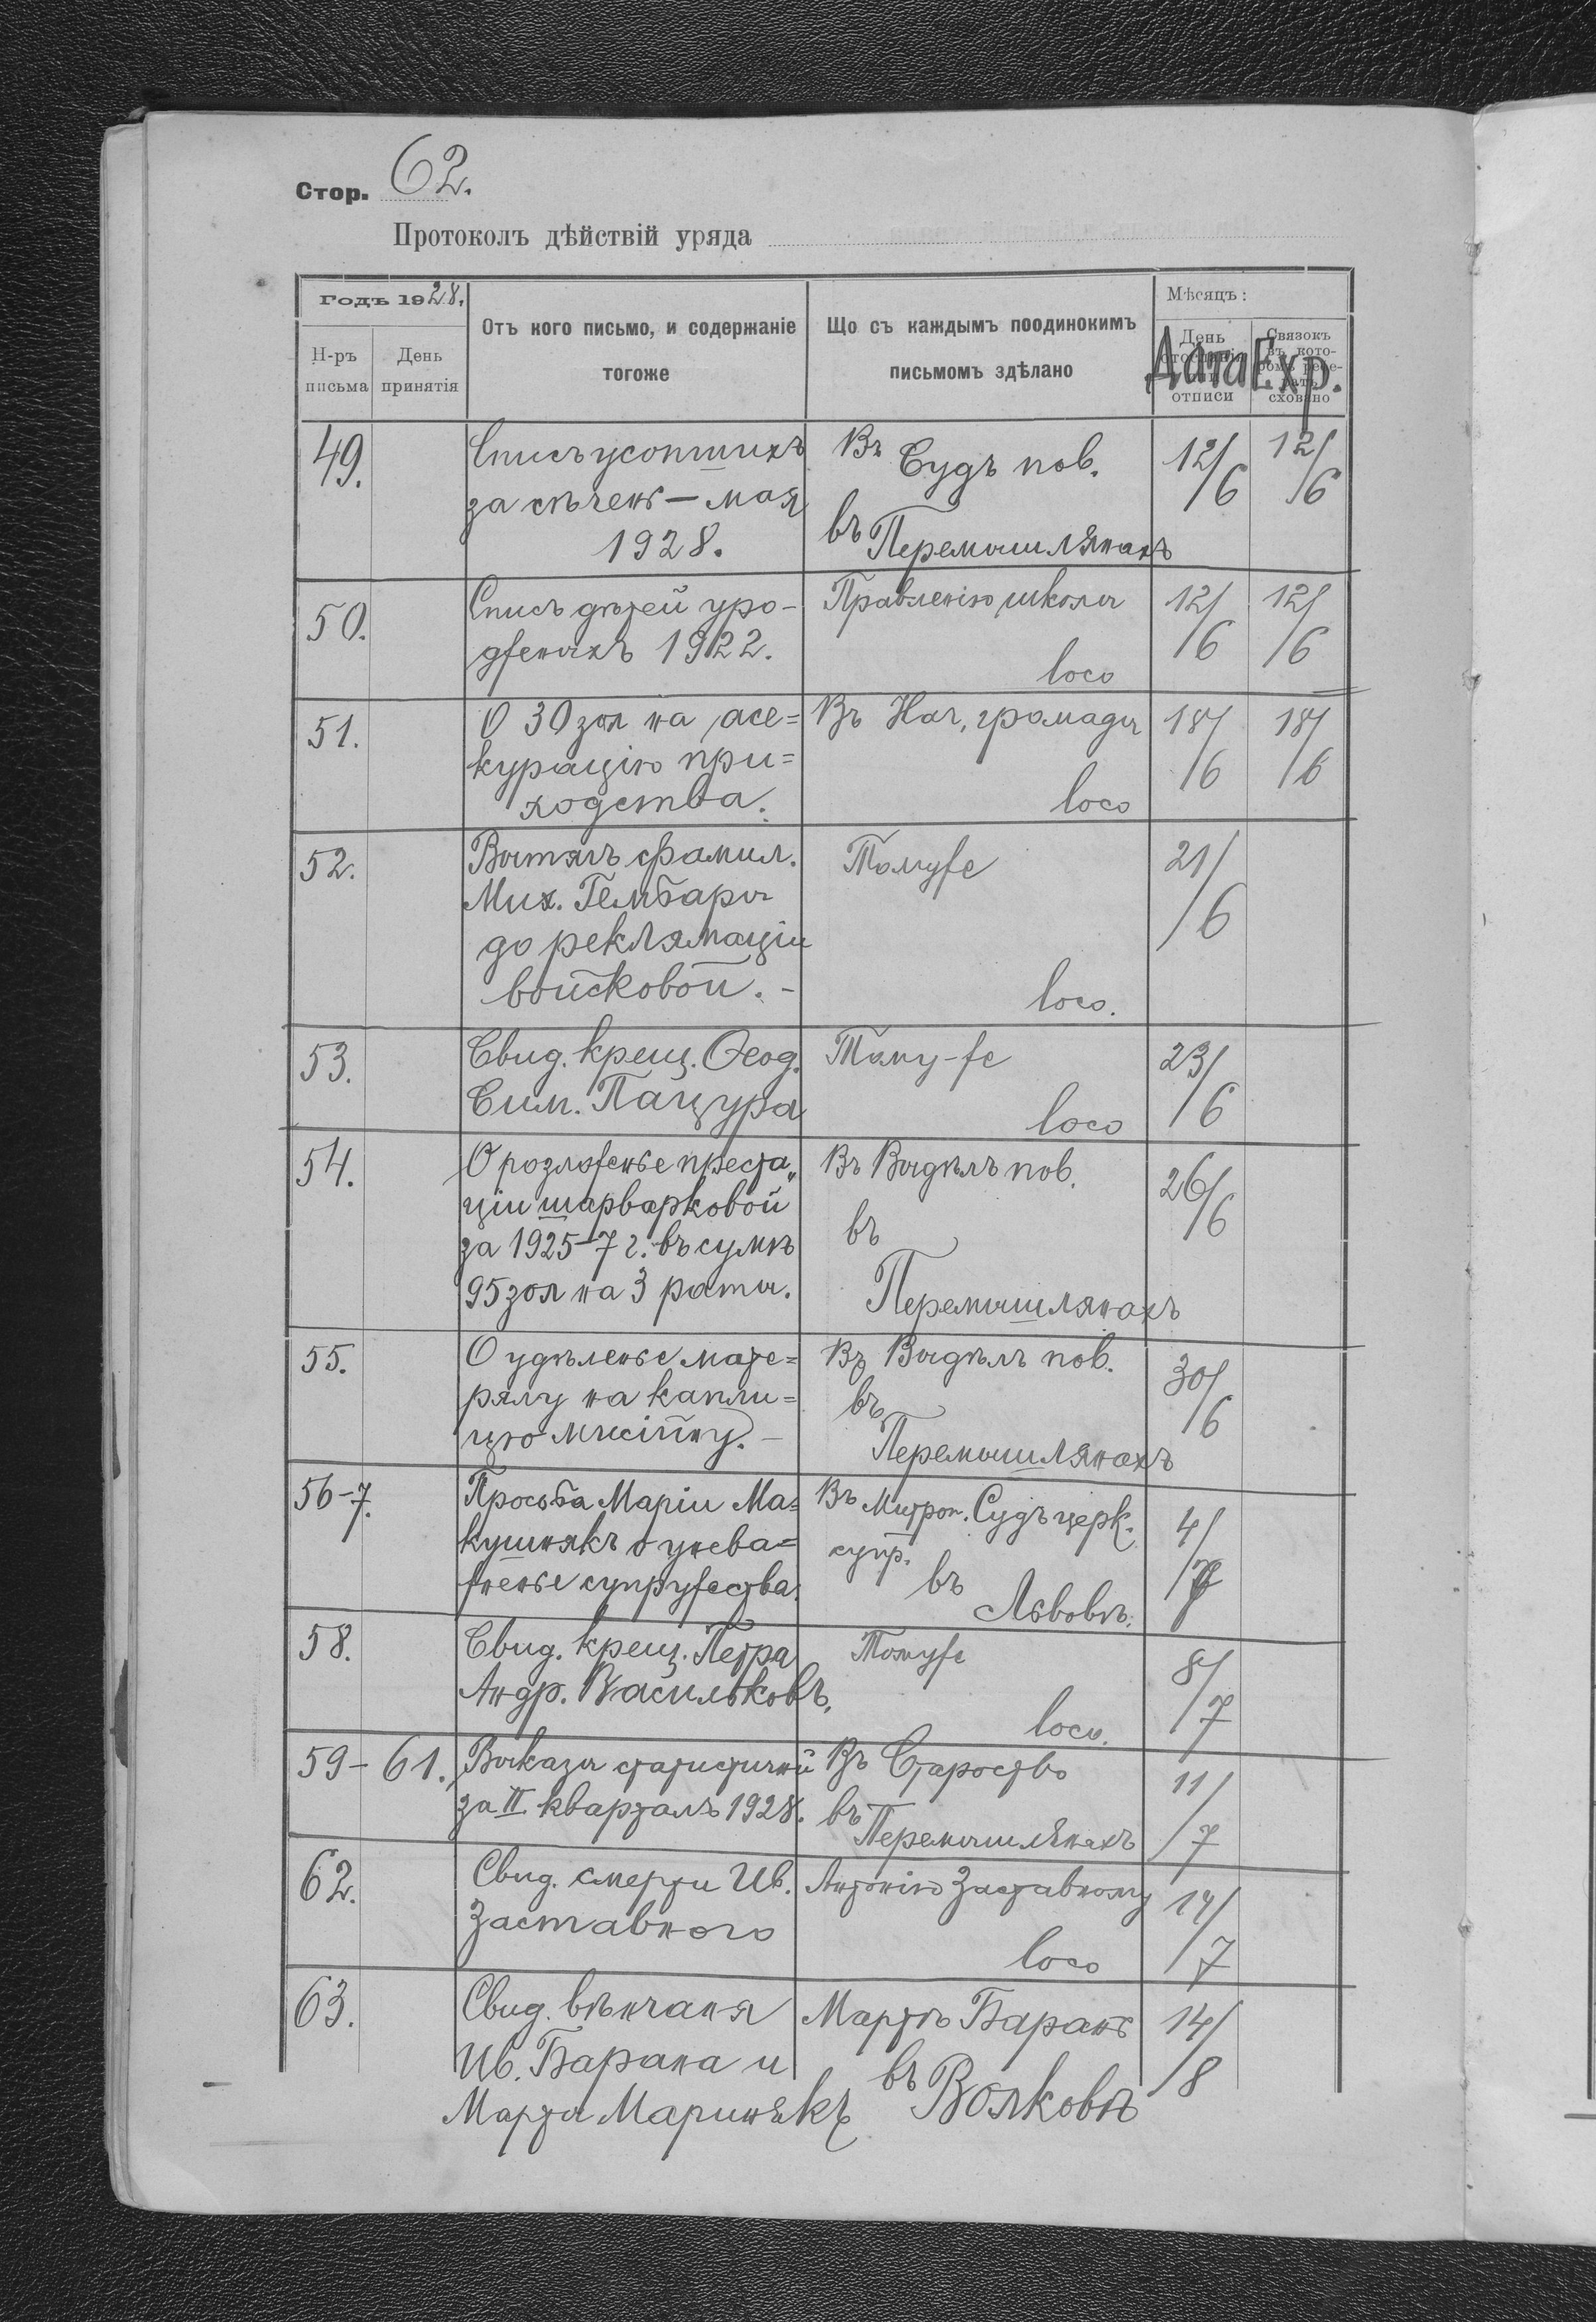 Стор. 62.
Протоколъ дѣйствій уряда
Годъ 1928.
Н-ръ письма
День принятія
Отъ кого письмо, и содержаніе
тогоже
Що съ каждымъ поодинокимъ
письмомъ здѣлано
Мѣсяцъ:
День
отписи
Дата
Связокъ
въ кото-
сховано
Exp.
49.
Списъ усопшихъ
за сѣчень — мая
1928.
Въ Судъ пов.
въ Перемышлянахъ
12/6
12/6
50.
Списъ дѣтей уро-
дженыхъ 1922.
Правленію школы
loco
12/6
12/6
51.
О 30 зол на асе=
курацію при=
ходства.
Въ Нач. громады
loco
18/6
18/6
52.
Вытягъ фамил.
Мих. Гембары
до реклямаціи
войсковой. -
Томуже
loco.
21/6
53.
Свид. крещ. Ѳеод.
Сим. Пацура
Тому-же
loco
23/6
54.
О розложенье преста„
ціи шарварковой
за 1925-7 г. въ сумѣ
95 зол на 3 раты.
Въ Выдѣлъ пов.
въ
Перемышлянахъ
26/6
55.
О удѣленье мате=
рялу на капли=
цю мисійну. -
Въ Выдѣлъ пов.
въ
Перемышлянахъ
30/6
56-7.
Просьба Маріи Ма=
кушнякъ о унева=
жненье супружества.
Въ Митроп. Судъ церк.
супр.
въ
Львовѣ.
4/7
58.
Свид. крещ. Петра
Андр. Васильковъ.
Томуже
loco.
8/7
59-61.
Выказы статистичнӥ
за II кварталъ 1928.
Въ Староство
въ Перемышлянахъ
11/7
62.
Свид. смерти Ив.
Заставного
Антонію Заставному
loco
14/7
63.
Свид. вѣнчаня
Ив. Барана и
Марты Маринякъ
Мартѣ Баранъ
въ Волковѣ
14/8